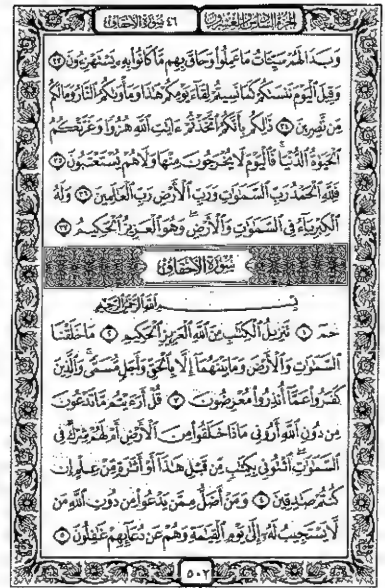 الجزء السادس والعشرون ٤٦ سورة الأحقاف
وَبَدَا لَهُمْ سَيِّئَاتُ مَا عَمِلُوا وَحَاقَ بِهِم مَّا كَانُوا بِهِ يَسْتَهْزِءُونَ ٣٣
وَقِيلَ الْيَوْمَ نَنسَىٰكُمْ كَمَا نَسِيتُمْ لِقَاءَ يَوْمِكُمْ هَٰذَا وَمَأْوَىٰكُمُ النَّارُ وَمَا لَكُم
مِّن نَّٰصِرِينَ ٣٤ ذَٰلِكُم بِأَنَّكُمُ اتَّخَذْتُمْ ءَايَٰتِ اللَّهِ هُزُوًا وَغَرَّتْكُمُ
الْحَيَوٰةُ الدُّنْيَا ۚ فَالْيَوْمَ لَا يُخْرَجُونَ مِنْهَا وَلَا هُمْ يُسْتَعْتَبُونَ ٣٥
فَلِلَّهِ الْحَمْدُ رَبِّ السَّمَٰوَٰتِ وَرَبِّ الْأَرْضِ رَبِّ الْعَٰلَمِينَ ٣٦ وَلَهُ
الْكِبْرِيَاءُ فِي السَّمَٰوَٰتِ وَالْأَرْضِ ۖ وَهُوَ الْعَزِيزُ الْحَكِيمُ ٣٧
سُورَةُ الأَحْقَافِ
بِسْمِ اللَّهِ الرَّحْمَٰنِ الرَّحِيمِ
حمٓ ١ تَنزِيلُ الْكِتَٰبِ مِنَ اللَّهِ الْعَزِيزِ الْحَكِيمِ ٢ مَا خَلَقْنَا
السَّمَٰوَٰتِ وَالْأَرْضَ وَمَا بَيْنَهُمَا إِلَّا بِالْحَقِّ وَأَجَلٍ مُّسَمًّى ۚ وَالَّذِينَ
كَفَرُوا عَمَّا أُنذِرُوا مُعْرِضُونَ ٣ قُلْ أَرَءَيْتُم مَّا تَدْعُونَ
مِن دُونِ اللَّهِ أَرُونِي مَاذَا خَلَقُوا مِنَ الْأَرْضِ أَمْ لَهُمْ شِرْكٌ فِي
السَّمَٰوَٰتِ ۖ ائْتُونِي بِكِتَٰبٍ مِّن قَبْلِ هَٰذَا أَوْ أَثَٰرَةٍ مِّنْ عِلْمٍ إِن
كُنتُمْ صَٰدِقِينَ ٤ وَمَنْ أَضَلُّ مِمَّن يَدْعُوا مِن دُونِ اللَّهِ مَن
لَّا يَسْتَجِيبُ لَهُ إِلَىٰ يَوْمِ الْقِيَٰمَةِ وَهُمْ عَن دُعَائِهِمْ غَٰفِلُونَ ٥
٥٠٢